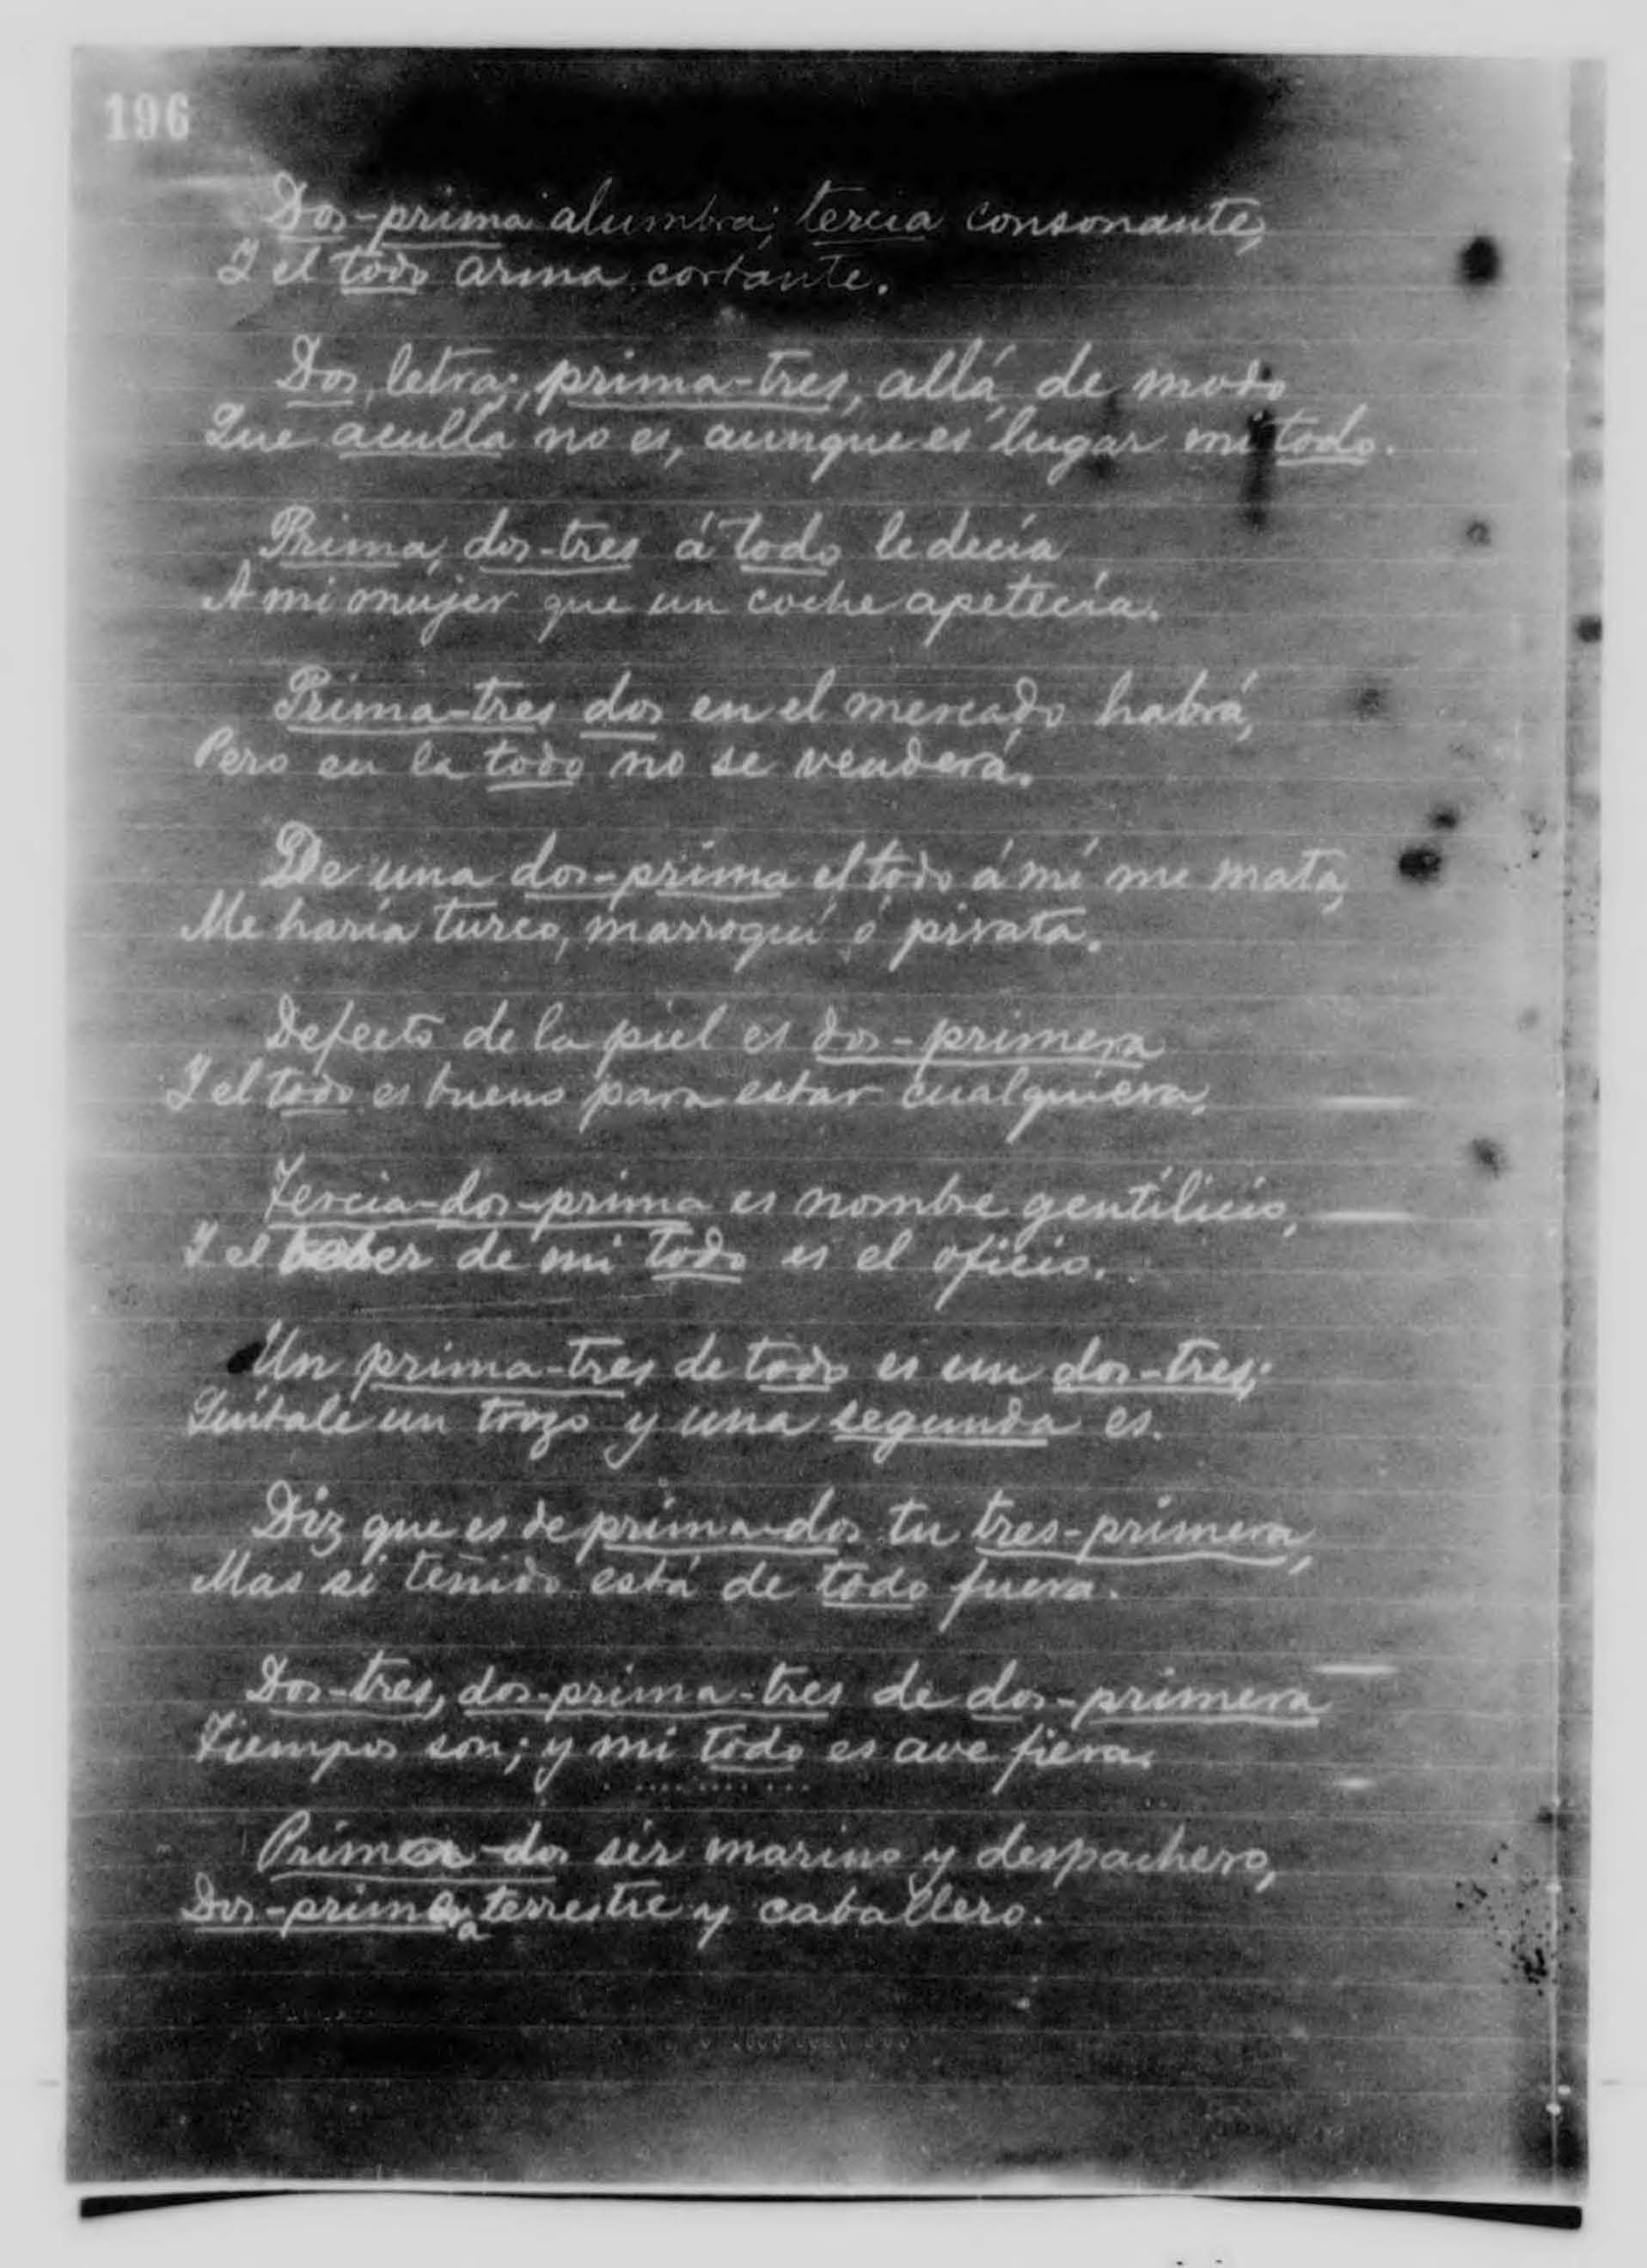 196
Dos-prima alumbra; tercia consonante,
I el todo arma cortante.
Dos, letra; prima-tres, allá, de modo
Que aculla no es, aunque es lugar mi todo.
Prima, dos-tres á todo le decía
A mi mujer que un coche apetecía.
Prima-tres dos en el mercado habrá,
Pero en la todo no se venderá.
De una dos-prima el todo á mí me mata,
Me haría turco, marroquí ó pirata.
Defecto de la piel es dos-primera
I el todo es bueno para estar cualquiera.
Tercia-dos-prima es nombre gentilicio,
I el beber de mi todo es el oficio.
Un prima-tres de todo es un dos-tres;
Quítale un trozo y una segunda es.
Diz que es de prima-dos tu tres-primera,
Mas si teñido está de todo fuera.
Dos-tres, dos-prima-tres de dos-primera
Tiempos son; y mi todo es ave fiera.
Prima-dos sér marino y despachero,
Dos-prima terrestre y caballero.